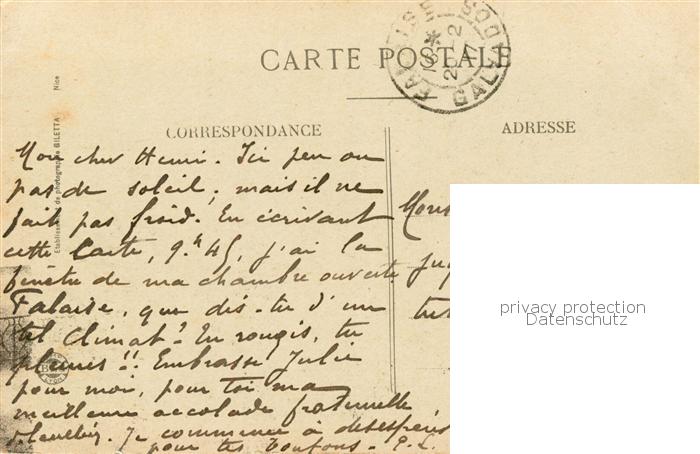 CARTE POSTALE
FALAISE * CALVADOS
CORRESPONDANCE
ADRESSE
Etablissements de photographie GILETTA Nice
Mon cher Henri. Ici peu ou
pas de soleil, mais il ne
fait pas froid. En écrivant
cette Carte, 9.h 45, j'ai la
fenêtre de ma chambre ouverte
Falaise, que dis-tu d'un
tel Climat? Tu rougis, tu
pleures!! Embrasse Julie
pour moi, pour toi ma
meilleure accolade fraternelle
Je commence à désespérer
pour tes
Mons
privacy protection
Datenschutz